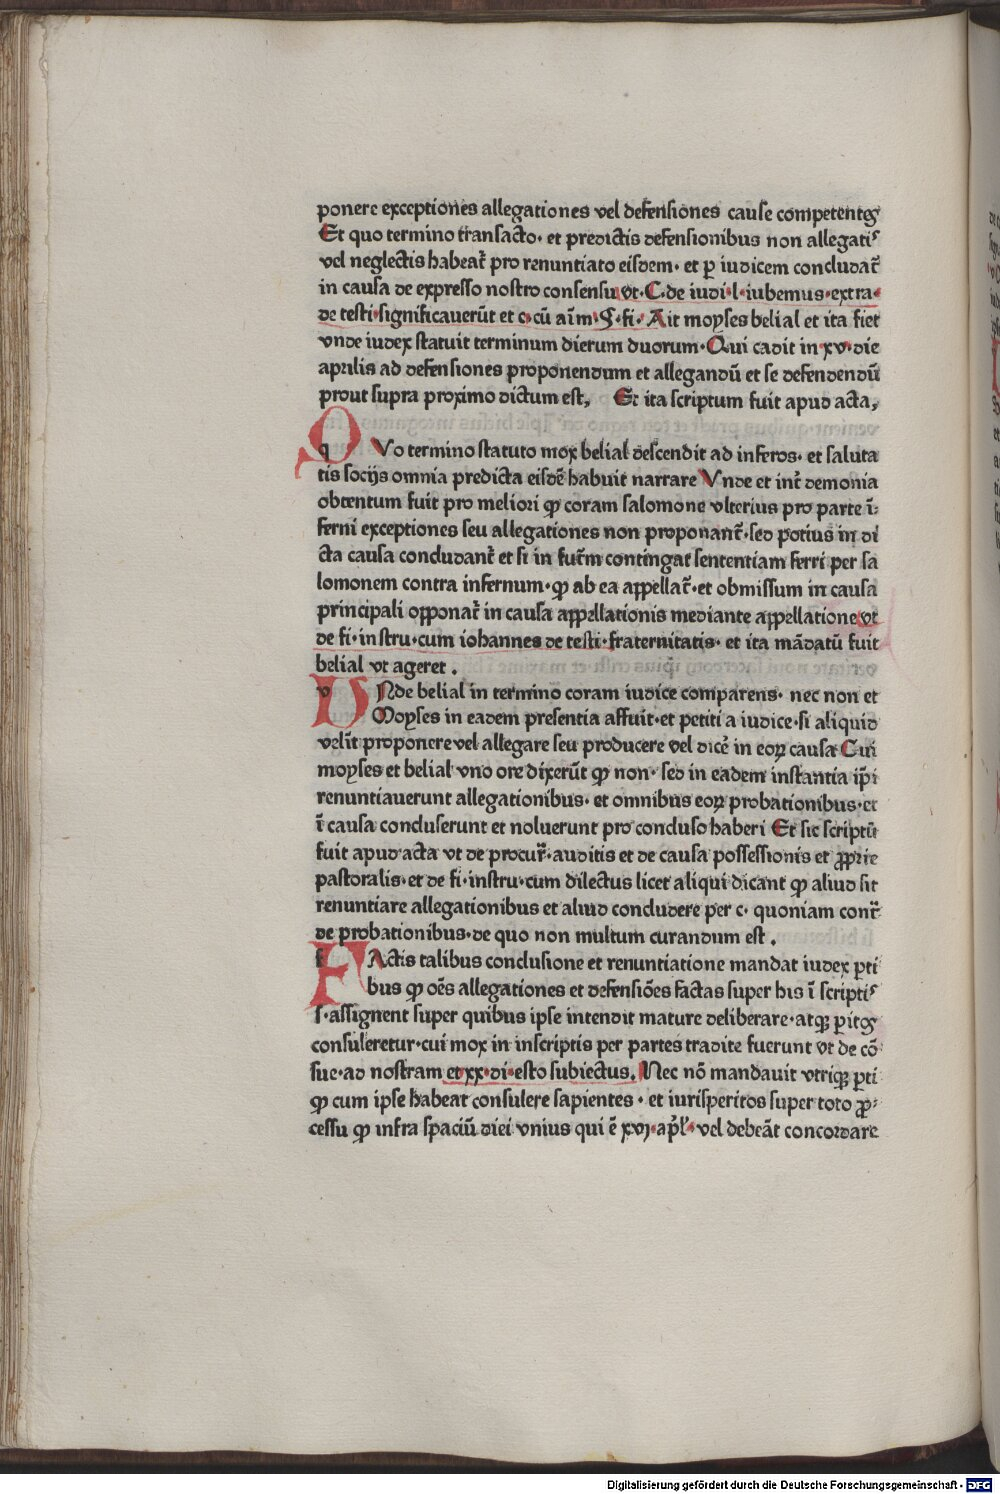 ponere exceptiones allegationes vel defensiones cause competentes
Et quo termino transacto· et predictis defensionibus non allegatis
vel neglectis habeat᷑ pro renuntiato eisdem· et ꝑ iudicem concludat᷑
in causa de expresso nostro consensu vt·C·de iudi·l·iubemus·extra·
de testi·significauerūt et c·cū aīm·§·fi· Ait moyses belial et ita fiet
vnde iudex statuit terminum dierum duorum·Qui cadit in·xv·die
aprilis ad defensiones proponendum et allegandū et se defendendū
prout supra proximo dictum est, Et ita scriptum fuit apud acta,
QVo termino statuto mox belial descendit ad inferos· et saluta
tis socijs omnia predicta eisdē habuit narrare Vnde et int᷑ demonia
obtentum fuit pro meliori ꝙ coram salomone vlterius pro parte ī·
ferni exceptiones seu allegationes non proponant᷑·sed potius in di
cta causa concludant᷑ et si in fut᷑m contingat sententiam ferri per sa
lomonem contra infernum·ꝙ ab ea appellat᷑·et obmissum in causa
principali opponat᷑ in causa appellationis mediante appellatione vt
de fi·instru·cum iohannes de testi·fraternitatis· et ita mādatū fuit
belial vt ageret .
VNde belial in termino coram iudice comparens· nec non et
Moyses in eadem presentia affuit·et petiti a iudice·si aliquid
velīt proponere vel allegare seu producere vel dicē in eoꝝ causa Cui
moyses et belial vno ore dixerūt ꝙ non· sed in eadem instantia ip̄i
renuntiauerunt allegationibus· et omnibus eoꝝ probationibus·et
ī causa concluserunt et noluerunt pro concluso haberi Et sic scriptū
fuit apud acta vt de procur᷑·auditis et de causa possessionis et ꝓprie
pastoralis·et de fi·instru·cum dilectus licet aliqui dicant ꝙ aliud sit
renuntiare allegationibus et aliud concludere per c· quoniam cont᷑·
de probationibus·de quo non multum curandum est .
FActis talibus conclusione et renuntiatione mandat iudex ꝑti
bus ꝙ oēs allegationes et defensiōes factas super his ī scriptis
s·assignent super quibus ipse intendit mature deliberare·atqꝫ ꝑitos
consuleretur·cui mox in inscriptis per partes tradite fuerunt vt de cō
sue·ad nostram et xx·di·esto subiectus. Nec nō mandauit vtriqꝫ ꝑti
ꝙ cum ipse habeat consulere sapientes · et iurisperitos super toto ꝓ·
cessu ꝙ infra spaciū diei vnius qui ē xvj·ap̄l᷑· vel debeāt concordare
Digitalisierung gefördert durch die Deutsche Forschungsgemeinschaft - DFG